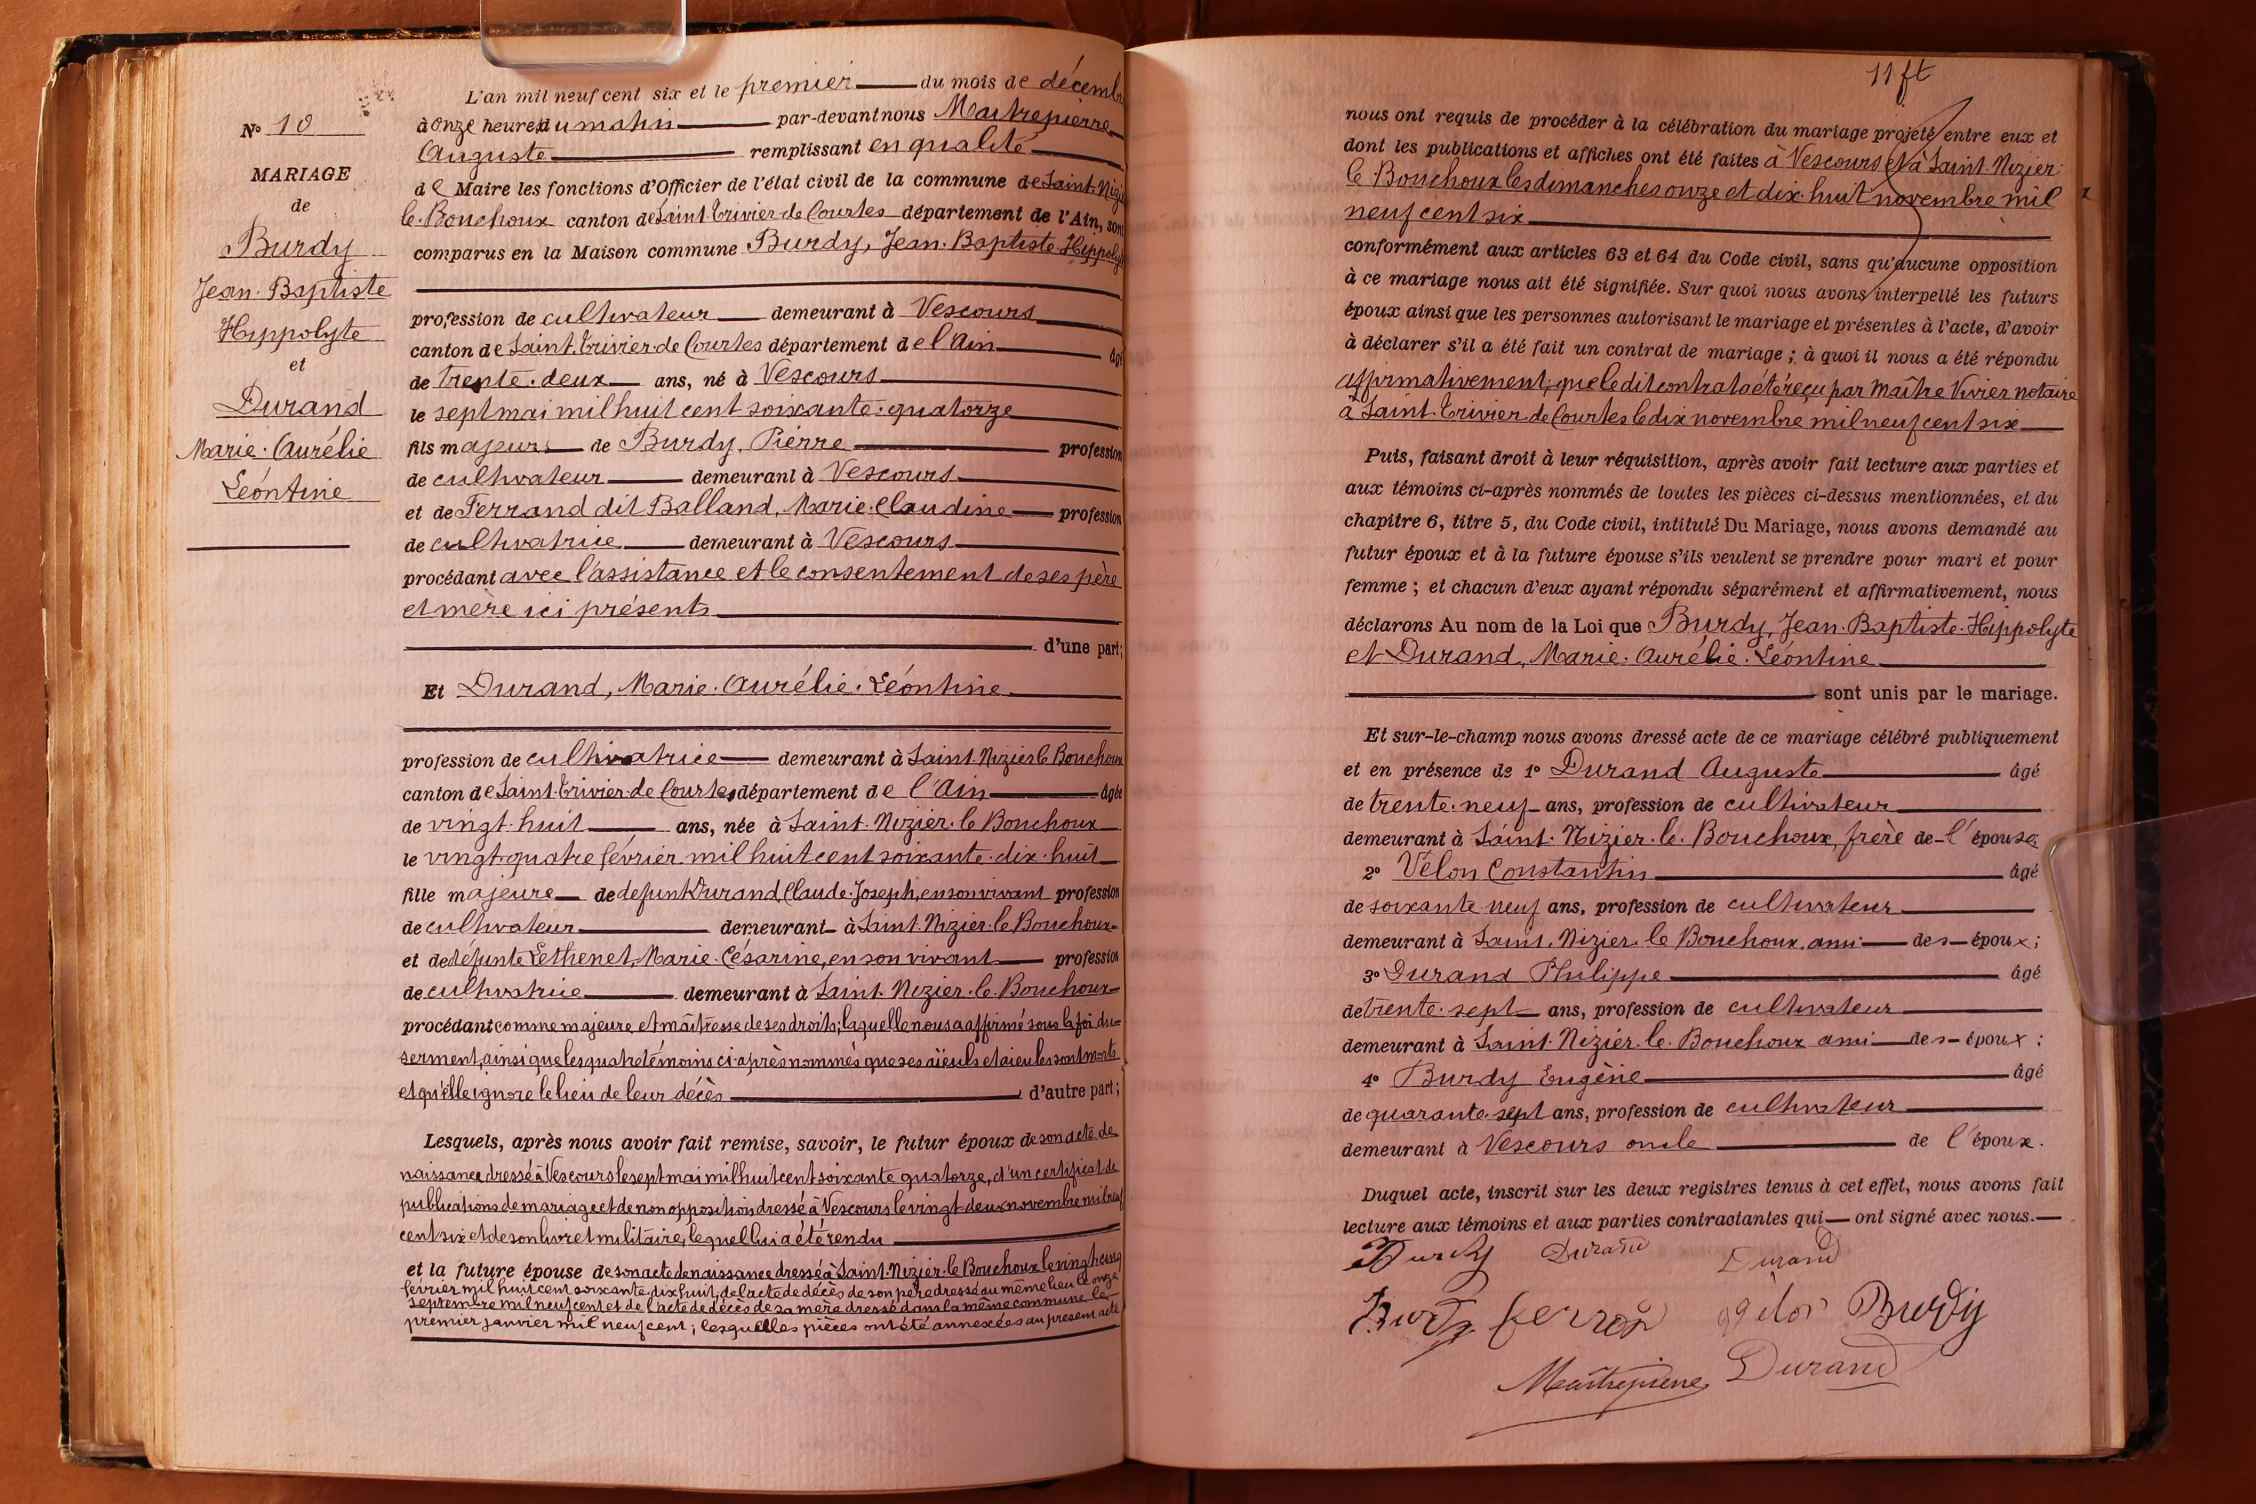 N° 10
MARIAGE
de
Burdy
Jean-Baptiste
Hippolyte
et
Durand
Marie-Aurélie
Léontine
L'an mil neuf cent six et le premier du mois de décembre
à onze heures du matin par-devant nous Maitrepierre
Auguste remplissant en qualité
de Maire les fonctions d'Officier de l'état civil de la commune de Saint-Nizier
le-Bouchoux canton de Saint-Trivier-de-Courtes département de l'Ain, sont
comparus en la Maison commune Burdy, Jean-Baptiste-Hippolyte
profession de cultivateur demeurant à Vescours
canton de Saint-Trivier-de-Courtes département de l'Ain âgé
de trente-deux ans, né à Vescours
le sept mai mil huit cent soixante-quatorze
fils majeurs de Burdy, Pierre profession
de cultivateur demeurant à Vescours
et de Ferrand dit Balland, Marie-Claudine profession
de cultivatrice demeurant à Vescours
procédant avec l'assistance et le consentement de ses père
et mère ici présents
d'une part;
Et Durand, Marie-Aurélie-Léontine
profession de cultivatrice demeurant à Saint-Nizier le Bouchoux
canton de Saint-Trivier-de-Courtes département de l'Ain âgée
de vingt-huit ans, née à Saint-Nizier-le-Bouchoux
le vingt-quatre février mil huit cent soixante-dix-huit
fille majeure de defunt Durand, Claude-Joseph, en son vivant profession
de cultivateur demeurant à Saint-Nizier-le-Bouchoux
et de défunte Lethenet, Marie-Césarine, en son vivant profession
de cultivatrice demeurant à Saint-Nizier-le-Bouchoux
procédant comme majeure et maîtresse de ses droits; laquelle nous a affirmé sous la foi du
serment, ainsi que les quatre témoins ci-après nommés que ses aïeuls et aieules sont morts
et qu'elle ignore le lieu de leur décès d'autre part;
Lesquels, après nous avoir fait remise, savoir, le futur époux de son acte de
naissance dressé à Vescours le sept mai mil huit cent soixante quatorze, d'un certificat de
publications de mariage et de non opposition dressé à Vescours le vingt-deux novembre mil neuf
cent six et de son livret militaire, lequel lui a été rendu
et la future épouse de son acte de naissance dressé à Saint-Nizier-le Bouchoux le vingt cinq
février mil huit cent soixante dix huit, de l'acte de décès de son père dressé au même lieu le onze
septembre mil neuf cent et de l'acte de décès de sa mère dressé dans la même commune le
premier janvier mil neuf cent; lesquelles pièces ont été annexées au présent acte
11 ft
nous ont requis de procéder à la célébration du mariage projeté entre eux et
dont les publications et affiches ont été faites à Vescours et à Saint-Nizier-
le Bouchoux les dimanches onze et dix-huit novembre mil
neuf cent six
conformément aux articles 63 et 64 du Code civil, sans qu'aucune opposition
à ce mariage nous ait été signifiée. Sur quoi nous avons interpellé les futurs
époux ainsi que les personnes autorisant le mariage et présentes à l'acte, d'avoir
à déclarer s'il a été fait un contrat de mariage; à quoi il nous a été répondu
affirmativement, que ledit contrat a été reçu par Maître Vivier notaire
à Saint-Trivier-de-Courtes le dix novembre mil neuf cent six
Puis, faisant droit à leur réquisition, après avoir fait lecture aux parties et
aux témoins ci-après nommés de toutes les pièces ci-dessus mentionnées, et du
chapitre 6, titre 5, du Code civil, intitulé Du Mariage, nous avons demandé au
futur époux et à la future épouse s'ils veulent se prendre pour mari et pour
femme; et chacun d'eux ayant répondu séparément et affirmativement, nous
déclarons Au nom de la Loi que Burdy, Jean-Baptiste-Hippolyte
et Durand, Marie-Aurélie-Léontine
sont unis par le mariage.
Et sur-le-champ nous avons dressé acte de ce mariage célébré publiquement
et en présence de 1° Durand Auguste âgé
de trente-neuf ans, profession de cultivateur
demeurant à Saint-Nizier-le-Bouchoux, frère de l'épouse
2° Velon Constantin âgé
de soixante neuf ans, profession de cultivateur
demeurant à Saint-Nizier-le Bouchoux ami des époux;
3° Durand Philippe âgé
de trente-sept ans, profession de cultivateur
demeurant à Saint-Nizier-le-Bouchoux ami des époux;
4° Burdy Eugène âgé
de quarante-sept ans, profession de cultivateur
demeurant à Vescours oncle de l'époux.
Duquel acte, inscrit sur les deux registres tenus à cet effet, nous avons fait
lecture aux témoins et aux parties contractantes qui ont signé avec nous.
Burdy Durand Durand
Burdy ferrand velon Burdy
Maitrepierre Durand